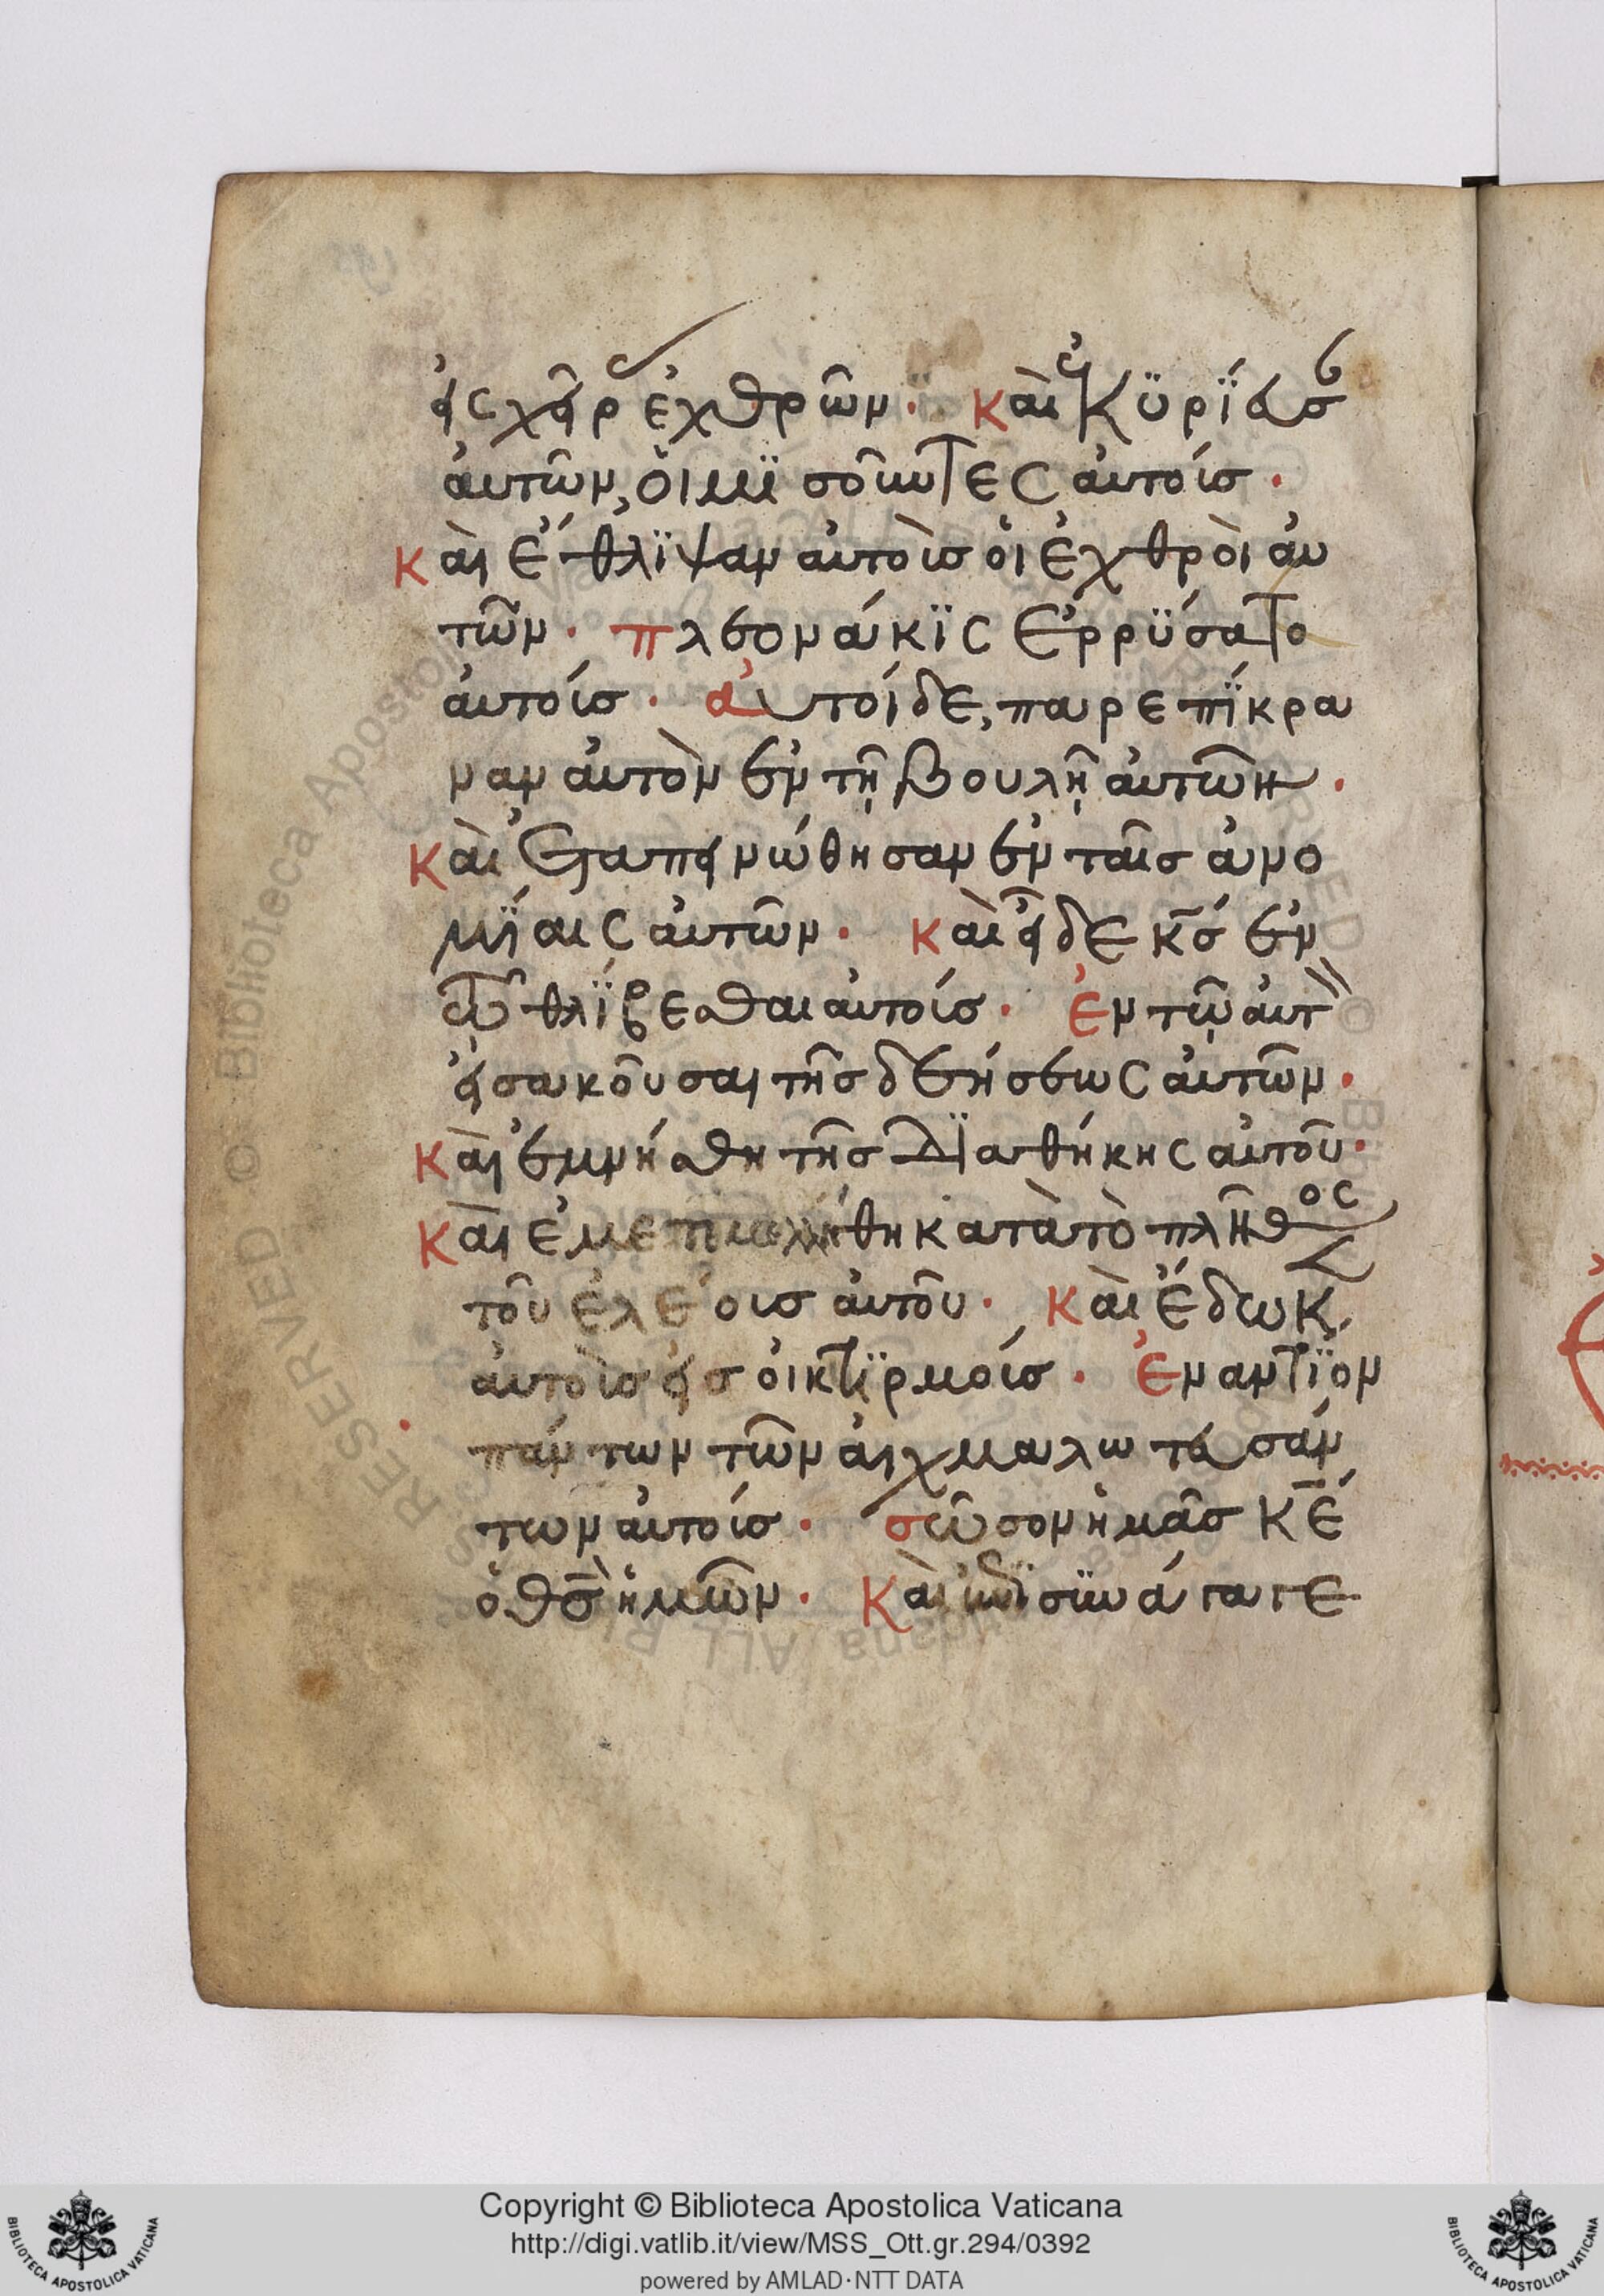 εἰς χεῖρ ἐχθρῶν· καὶ ἐκϋρΐευσ
ἀυτῶν, ὁι μϊσοῦντες ἀυτοίσ·
Κὰι ἔθλϊψαν ἀυτὸισ ὁι ἐχθρὸι ἀυ
τῶν· πλεονάκϊς ἐρρΰσατο
ἀυτοίσ· ἀυτοί δε, παρεπΐκρα
ναν ἀυτὸν ἐν τῆ βουλῆ ἀυτῶν·
Κὰι ἐταπεινώθησαν ἐν ταῖσ ἀνο
μΐαις ἀυτῶν· κὰι εἶδε κ̅σ̅ ἐν
τῶ θλΐβεσθαι ἀυτοίσ· ἐν τῶ ἀυτ
εἰσακοῦσαι τῆσ δεήσεως ἀυτῶν·
Κὰι ἐμνήσθη τῆσ Δϊαθήκης ἀυτοῦ·
Κὰι ἐμεταμελήθη κατὰ τὸ πλῆθος
τοῦ ἐλέουσ ἀυτοῦ· Κὰι ἔδωκ
ἀυτὸισ εἰσ ὀικτϊρμοίσ· ἐναντΐον
πάντων τῶν ἀιχμαλωτευσάν
των ἀυτοίσ· σῶσον ἡμᾶσ κ̅ε̅
ὁ θ̅σ̅ ἡμῶν· Κὰι ἐπϊσϋνάγαγε
Copyright © Biblioteca Apostolica Vaticana
http://digi.vatlib.it/view/MSS_Ott.gr.294/0392
powered by AMLAD·NTT DATA
BIBLIOTECA APOSTOLICA VATICANA
BIBLIOTECA APOSTOLICA VATICANA